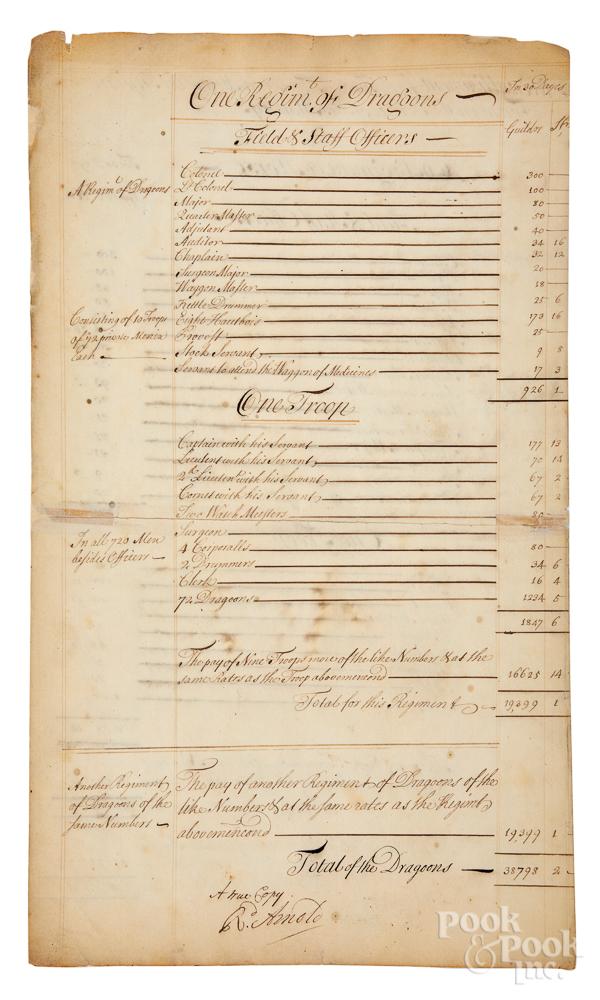 One Regimt. of Dragoons
In 30 Dayes
Field & Staff Officers
Guilds Stv
A Regimt. of Dragoons
Colonel 300
Lt Colonel 100
Major 80
Quarter Master 50
Adjutant 40
Auditor 34 16
Chaplain 32 12
Surgeon Major 20
Waggon Master 18
Kettle Drummer 25 6
Consisting of 10 Troops
of 72 private Men in
Each
Eight Hautbois 173 16
Provost 25
Stock Servant 9 8
Servant to attend the Waggon of Medicines 17 3
926 1
One Troop
Captain with his Servant 177 13
Lieutent with his Servant 70 14
2d Lieutent with his Servant 67 2
Cornet with his Servant 67 2
Two Watch Meesters 80
In all 720 Men
besides Officers
Surgeon
4 Corporalls 80
2 Drummers 34 6
Clerk 16 4
72 Dragoons 1234 5
1847 6
The pay of Nine Troops more of the like Numbers & at the
same Rates as the Troop abovemencond 16625 14
Total for this Regiment 19,399 1
Another Regiment
of Dragoons of the
same Numbers
The pay of another Regiment of Dragoons of the
like Numbers & at the same rates as the Regimt
abovemencond 19,399 1
Total of the Dragoons 38798 2
A true Copy
Rd. Arnold
POOK
& POOK
INC.